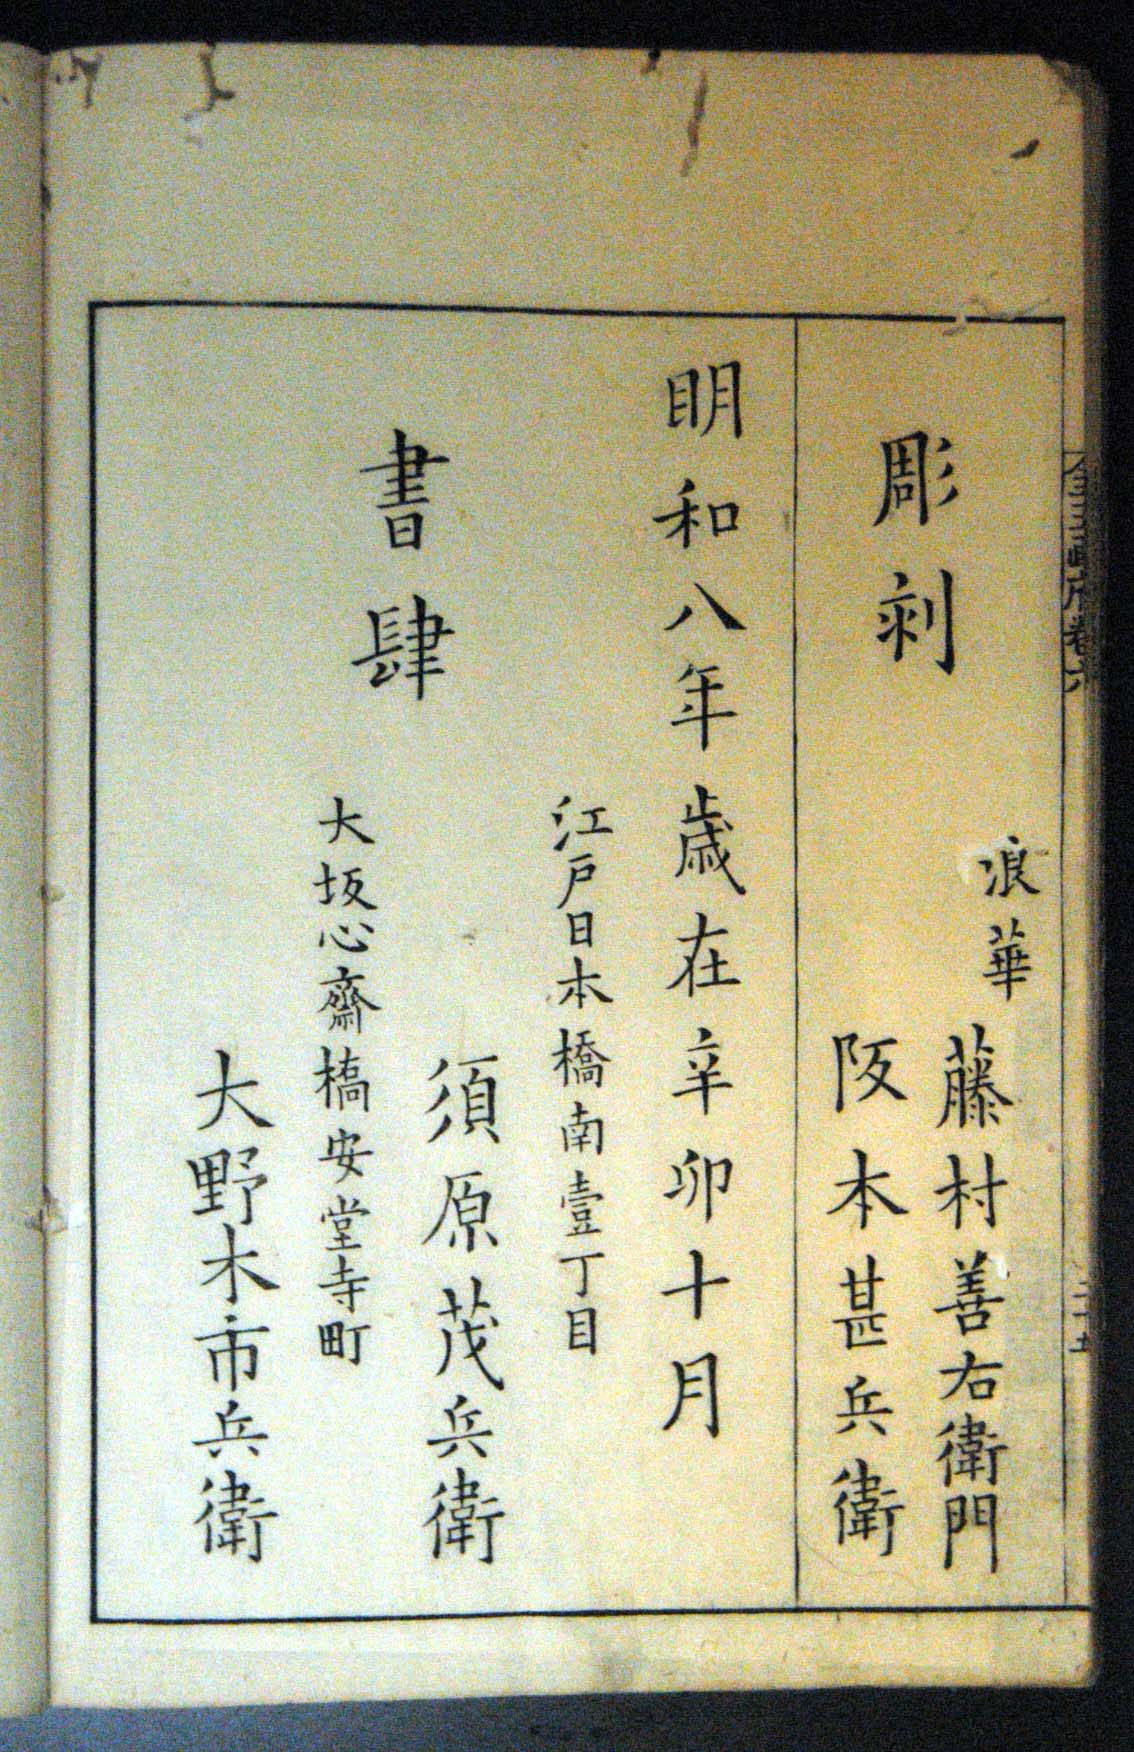 彫刻
浪華
藤村善右衛門
阪本甚兵衛
明和八年歳在辛卯十月
書肆
江戸日本橋南壹丁目
須原茂兵衛
大坂心齋橋安堂寺町
大野木市兵衛